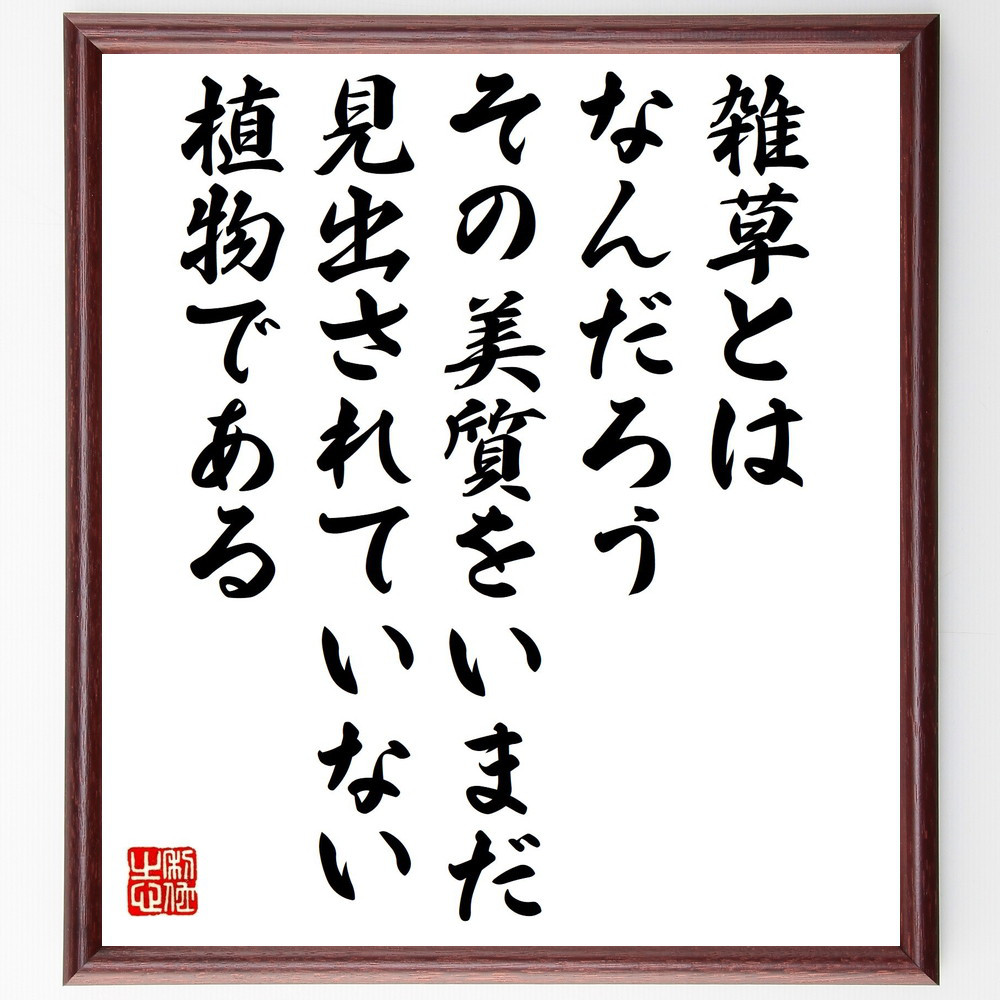 雑草とは
なんだろう
その美質をいまだ
見出されていない
植物である